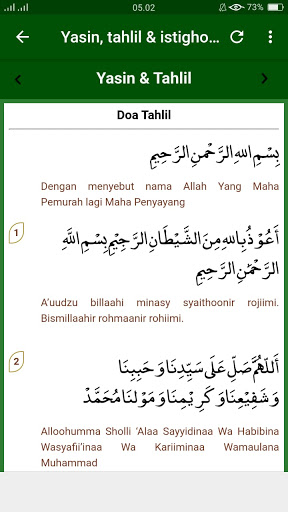 05.02
73%
Yasin, tahlil & istigho...
Yasin & Tahlil
Doa Tahlil
بِسْمِ اللهِ الرَّحْمٰنِ الرَّحِيْمِ
Dengan menyebut nama Allah Yang Maha
Pemurah lagi Maha Penyayang
1
أَعُوْذُ بِاللهِ مِنَ الشَّيْطَانِ الرَّجِيْمِ بِسْمِ اللَّهِ
الرَّحْمٰنِ الرَّحِيْمِ
A'uudzu billaahi minasy syaithoonir rojiimi.
Bismillaahir rohmaanir rohiimi.
2
أَللّٰهُمَّ صَلِّ عَلَى سَيِّدِنَا وَ حَبِيبِنَا
وَ شَفِيْعِنَا وَ كَرِيْمِنَا وَ مَوْلٰنَا مُحَمَّدْ
Alloohumma Sholli 'Alaa Sayyidinaa Wa Habibina
Wasyafii'inaa Wa Kariiminaa Wamaulana
Muhammad